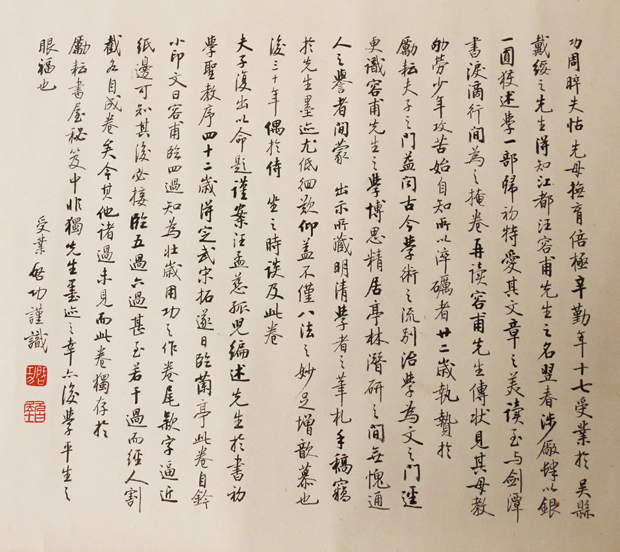 功周晬失怙先母撫育倍極辛勤年十七受業於吳縣
戴綏之先生得知江都汪容甫先生之名翌春涉廠肆以銀
一圓獲述學一部歸初特愛其文章之美讀至与劍潭
書淚滴行間為之掩卷再讀容甫先生傳狀見其母教
劬勞少年攻苦始自知所以淬礪者廿二歲執贄於
勵耘夫子之門益聞古今學術之流別治學為文之門逕
更識容甫先生之學博思精居亭林潛研之間無愧通
人之譽者間蒙 出示所藏明清學者之筆札手稿竊
於先生墨迹尤低徊歎仰蓋不僅八法之妙足增歆慕也
後三十年偶於侍坐之時談及此卷
夫子復出以命題謹案汪孟慈孤兒編述先生於書初
學聖教序四十二歲得定武宋拓遂日臨蘭亭此卷自鈐
小印文曰容甫臨四過知為壯歲用功之作卷尾款字逼近
紙邊可知其後必接臨五過六過甚至若干過而經人割
截各自成卷矣今其他諸過未見而此卷獨存於
勵耘書屋秘笈中非獨先生墨迹之幸亦後學平生之
眼福也
受業啟功謹識
啟功